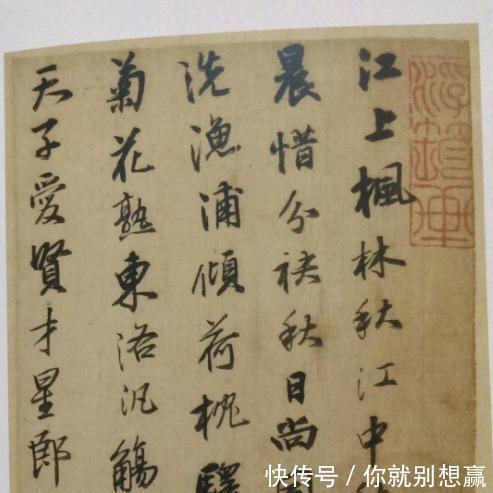 江上楓林秋江中
晨惜分袂秋日尚
洗漁浦傾荷枕驛
菊花熟東洛汎觴
天子愛賢才星郎
快传号/你就别想赢